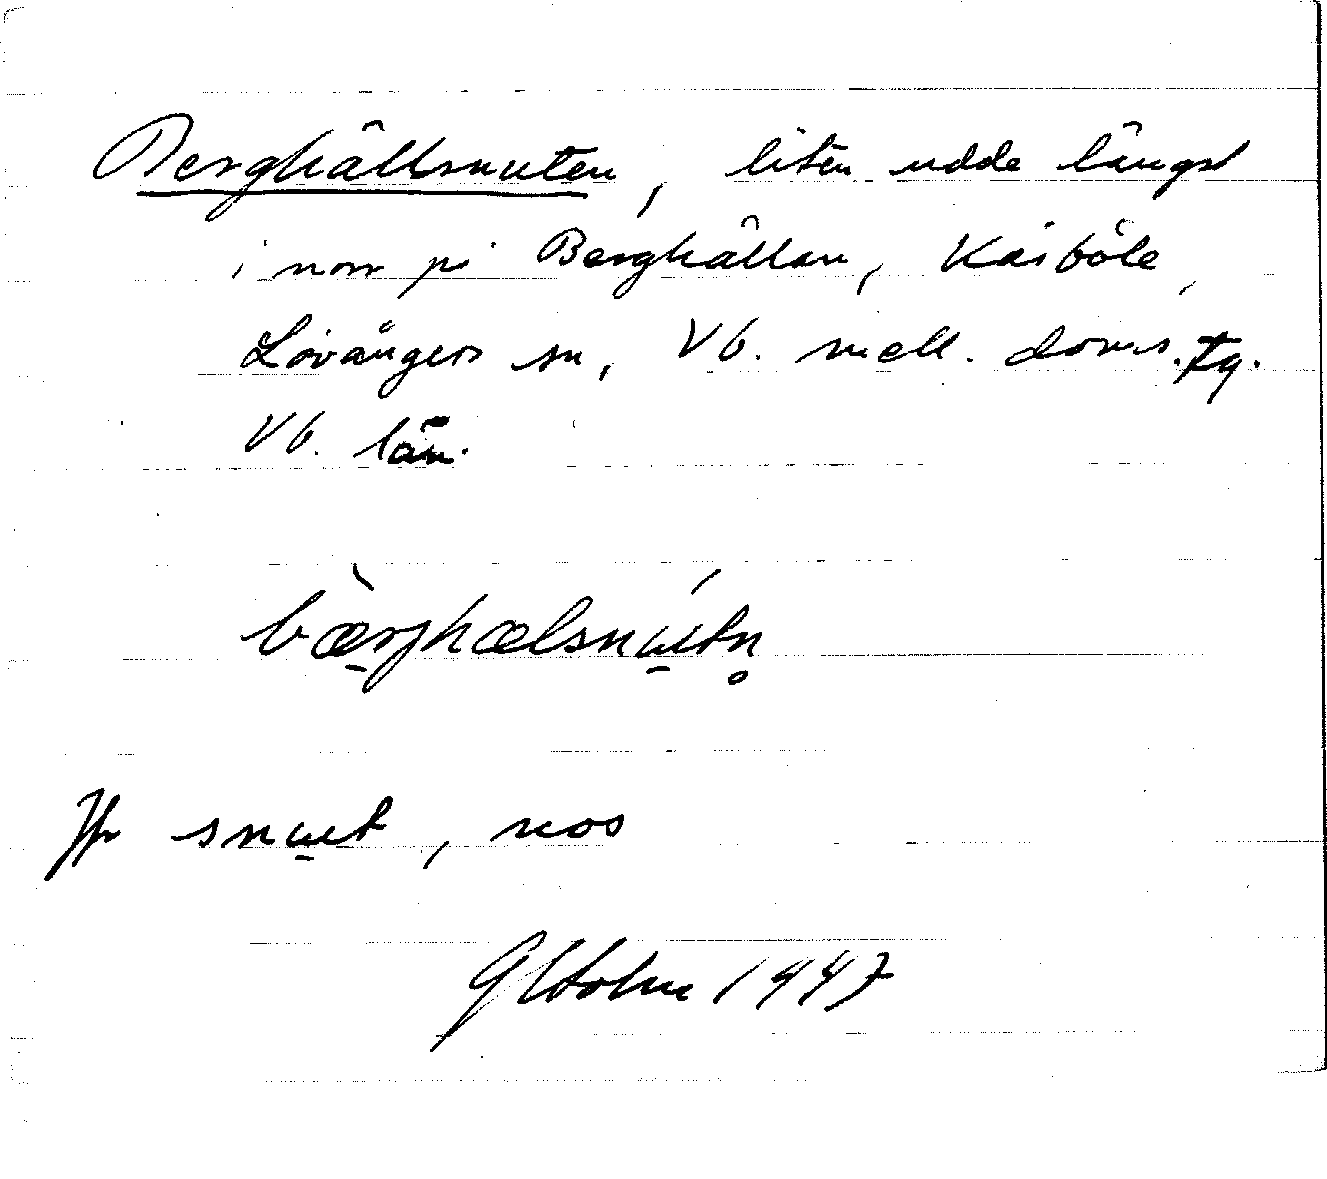 Berghällsnuten, liten udde längst
i norr på Berghällan, Kåsböle,
Lövångers sn, Vb. mell. doms.tg.
Vb. län.
bæ̀rjhælsnútn̥
Jfr snut, nos
G Holm 1947